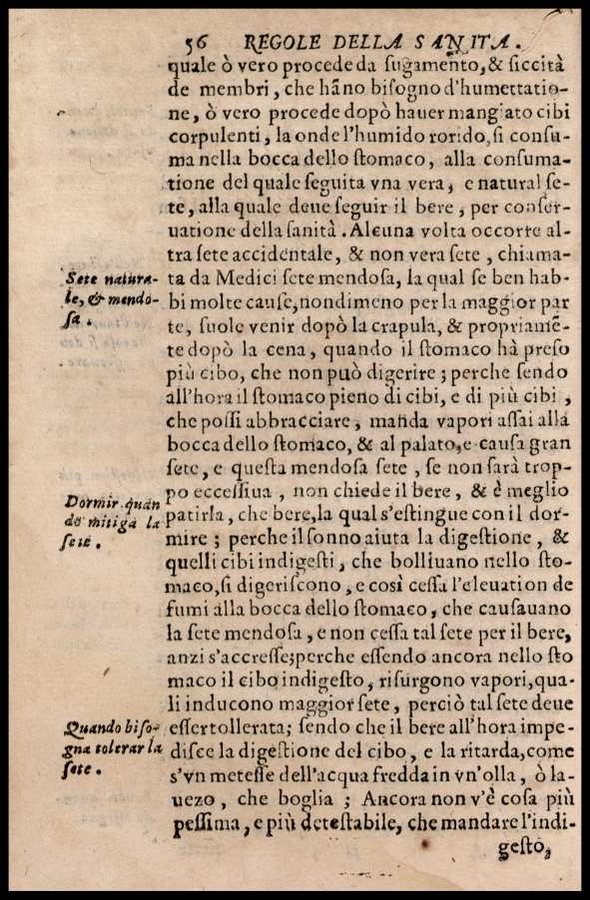 56 REGOLE DELLA SANITA.
quale ò vero procede da sugamento, & siccità
de membri, che hãno bisogno d'humettatio-
ne, ò vero procede dopò hauer mangiato cibi
corpulenti, la onde l'humido rorido, si consu-
ma nella bocca dello stomaco, alla consuma-
tione del quale seguita vna vera, e natural se-
te, alla quale deue seguir il bere, per conser-
uatione della sanità. Alcuna volta occorre al-
tra sete accidentale, & non vera sete, chiama-
Sete natura-
le, & mendo-
sa.
ta da Medici sete mendosa, la qual se ben hab-
bi molte cause, nondimeno per la maggior par
te, suole venir dopò la crapula, & propriamẽ-
te dopò la cena, quando il stomaco hà preso
più cibo, che non può digerire; perche sendo
all'hora il stomaco pieno di cibi, e di più cibi,
che possi abbracciare, manda vapori assai alla
bocca dello stomaco, & al palato, e causa gran
sete, e questa mendosa sete, se non sarà trop-
Dormir quan
do mitiga la
sete.
po eccessiua, non chiede il bere, & è meglio
patirla, che bere, la qual s'estingue con il dor-
mire; perche il sonno aiuta la digestione, &
quelli cibi indigesti, che bolliuano nello sto-
maco, si digeriscono, e così cessa l'eleuation de
fumi alla bocca dello stomaco, che causauano
la sete mendosa, e non cessa tal sete per il bere,
anzi s'accresse; perche essendo ancora nello sto
maco il cibo indigesto, risurgono vapori, qua-
li inducono maggior sete, perciò tal sete deue
Quando biso-
gna tolerar la
sete.
esser tollerata; sendo che il bere all'hora impe-
disce la digestione del cibo, e la ritarda, come
s'vn metesse dell'acqua fredda in vn'olla, ò la-
uezo, che boglia; Ancora non v'è cosa più
pessima, e più detestabile, che mandare l'indi-
gesto,